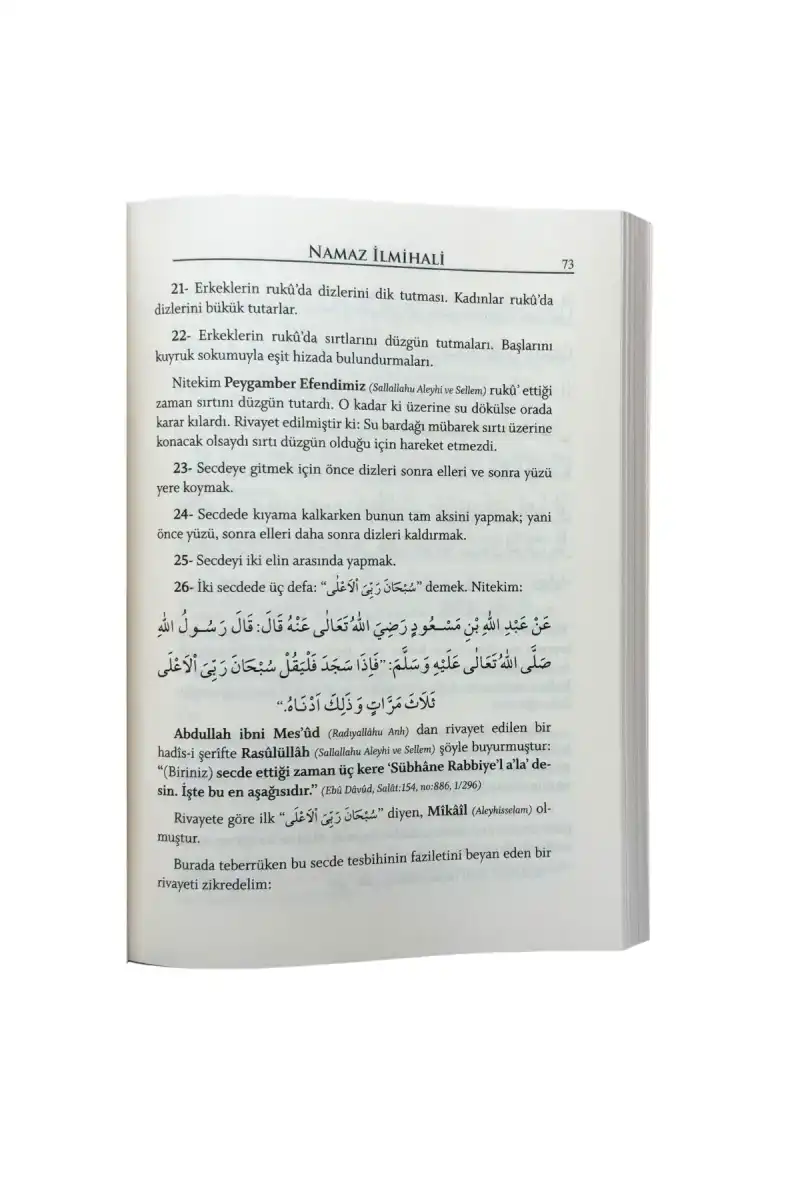 NAMAZ İLMİHALİ
73
21- Erkeklerin rukû'da dizlerini dik tutması. Kadınlar rukû'da
dizlerini bükük tutarlar.
22- Erkeklerin rukû'da sırtlarını düzgün tutmaları. Başlarını
kuyruk sokumuyla eşit hizada bulundurmaları.
Nitekim Peygamber Efendimiz (Sallallahu Aleyhi ve Sellem) rukû' ettiği
zaman sırtını düzgün tutardı. O kadar ki üzerine su dökülse orada
karar kılardı. Rivayet edilmiştir ki: Su bardağı mübarek sırtı üzerine
konacak olsaydı sırtı düzgün olduğu için hareket etmezdi.
23- Secdeye gitmek için önce dizleri sonra elleri ve sonra yüzü
yere koymak.
24- Secdede kıyama kalkarken bunun tam aksini yapmak; yani
önce yüzü, sonra elleri daha sonra dizleri kaldırmak.
25- Secdeyi iki elin arasında yapmak.
26- İki secdede üç defa: “سُبْحَانَ رَبِّىَ اْلاَعْلٰى” demek. Nitekim:
عَنْ عَبْدِ اللهِ بْنِ مَسْعُودٍ رَضِيَ اللهُ تَعَالٰى عَنْهُ قَالَ: قَالَ رَسُولُ اللهِ
صَلَّى اللهُ تَعَالٰى عَلَيْهِ وَسَلَّمَ: ”فَإِذَا سَجَدَ فَلْيَقُلْ سُبْحَانَ رَبِّىَ اْلاَعْلٰى
ثَلاَثَ مَرَّاتٍ وَ ذٰلِكَ اَدْنَاهُ.“
Abdullah ibni Mes'ûd (Radıyallâhu Anh) dan rivayet edilen bir
hadîs-i şerîfte Rasûlüllâh (Sallallahu Aleyhi ve Sellem) şöyle buyurmuştur:
“(Biriniz) secde ettiği zaman üç kere ‘Sübhâne Rabbiye'l a'la’ de-
sin. İşte bu en aşağısıdır.” (Ebû Dâvûd, Salât:154, no:886, 1/296)
Rivayete göre ilk “سُبْحَانَ رَبِّىَ اْلاَعْلٰى” diyen, Mîkâîl (Aleyhisselam) ol-
muştur.
Burada teberrüken bu secde tesbihinin faziletini beyan eden bir
rivayeti zikredelim: